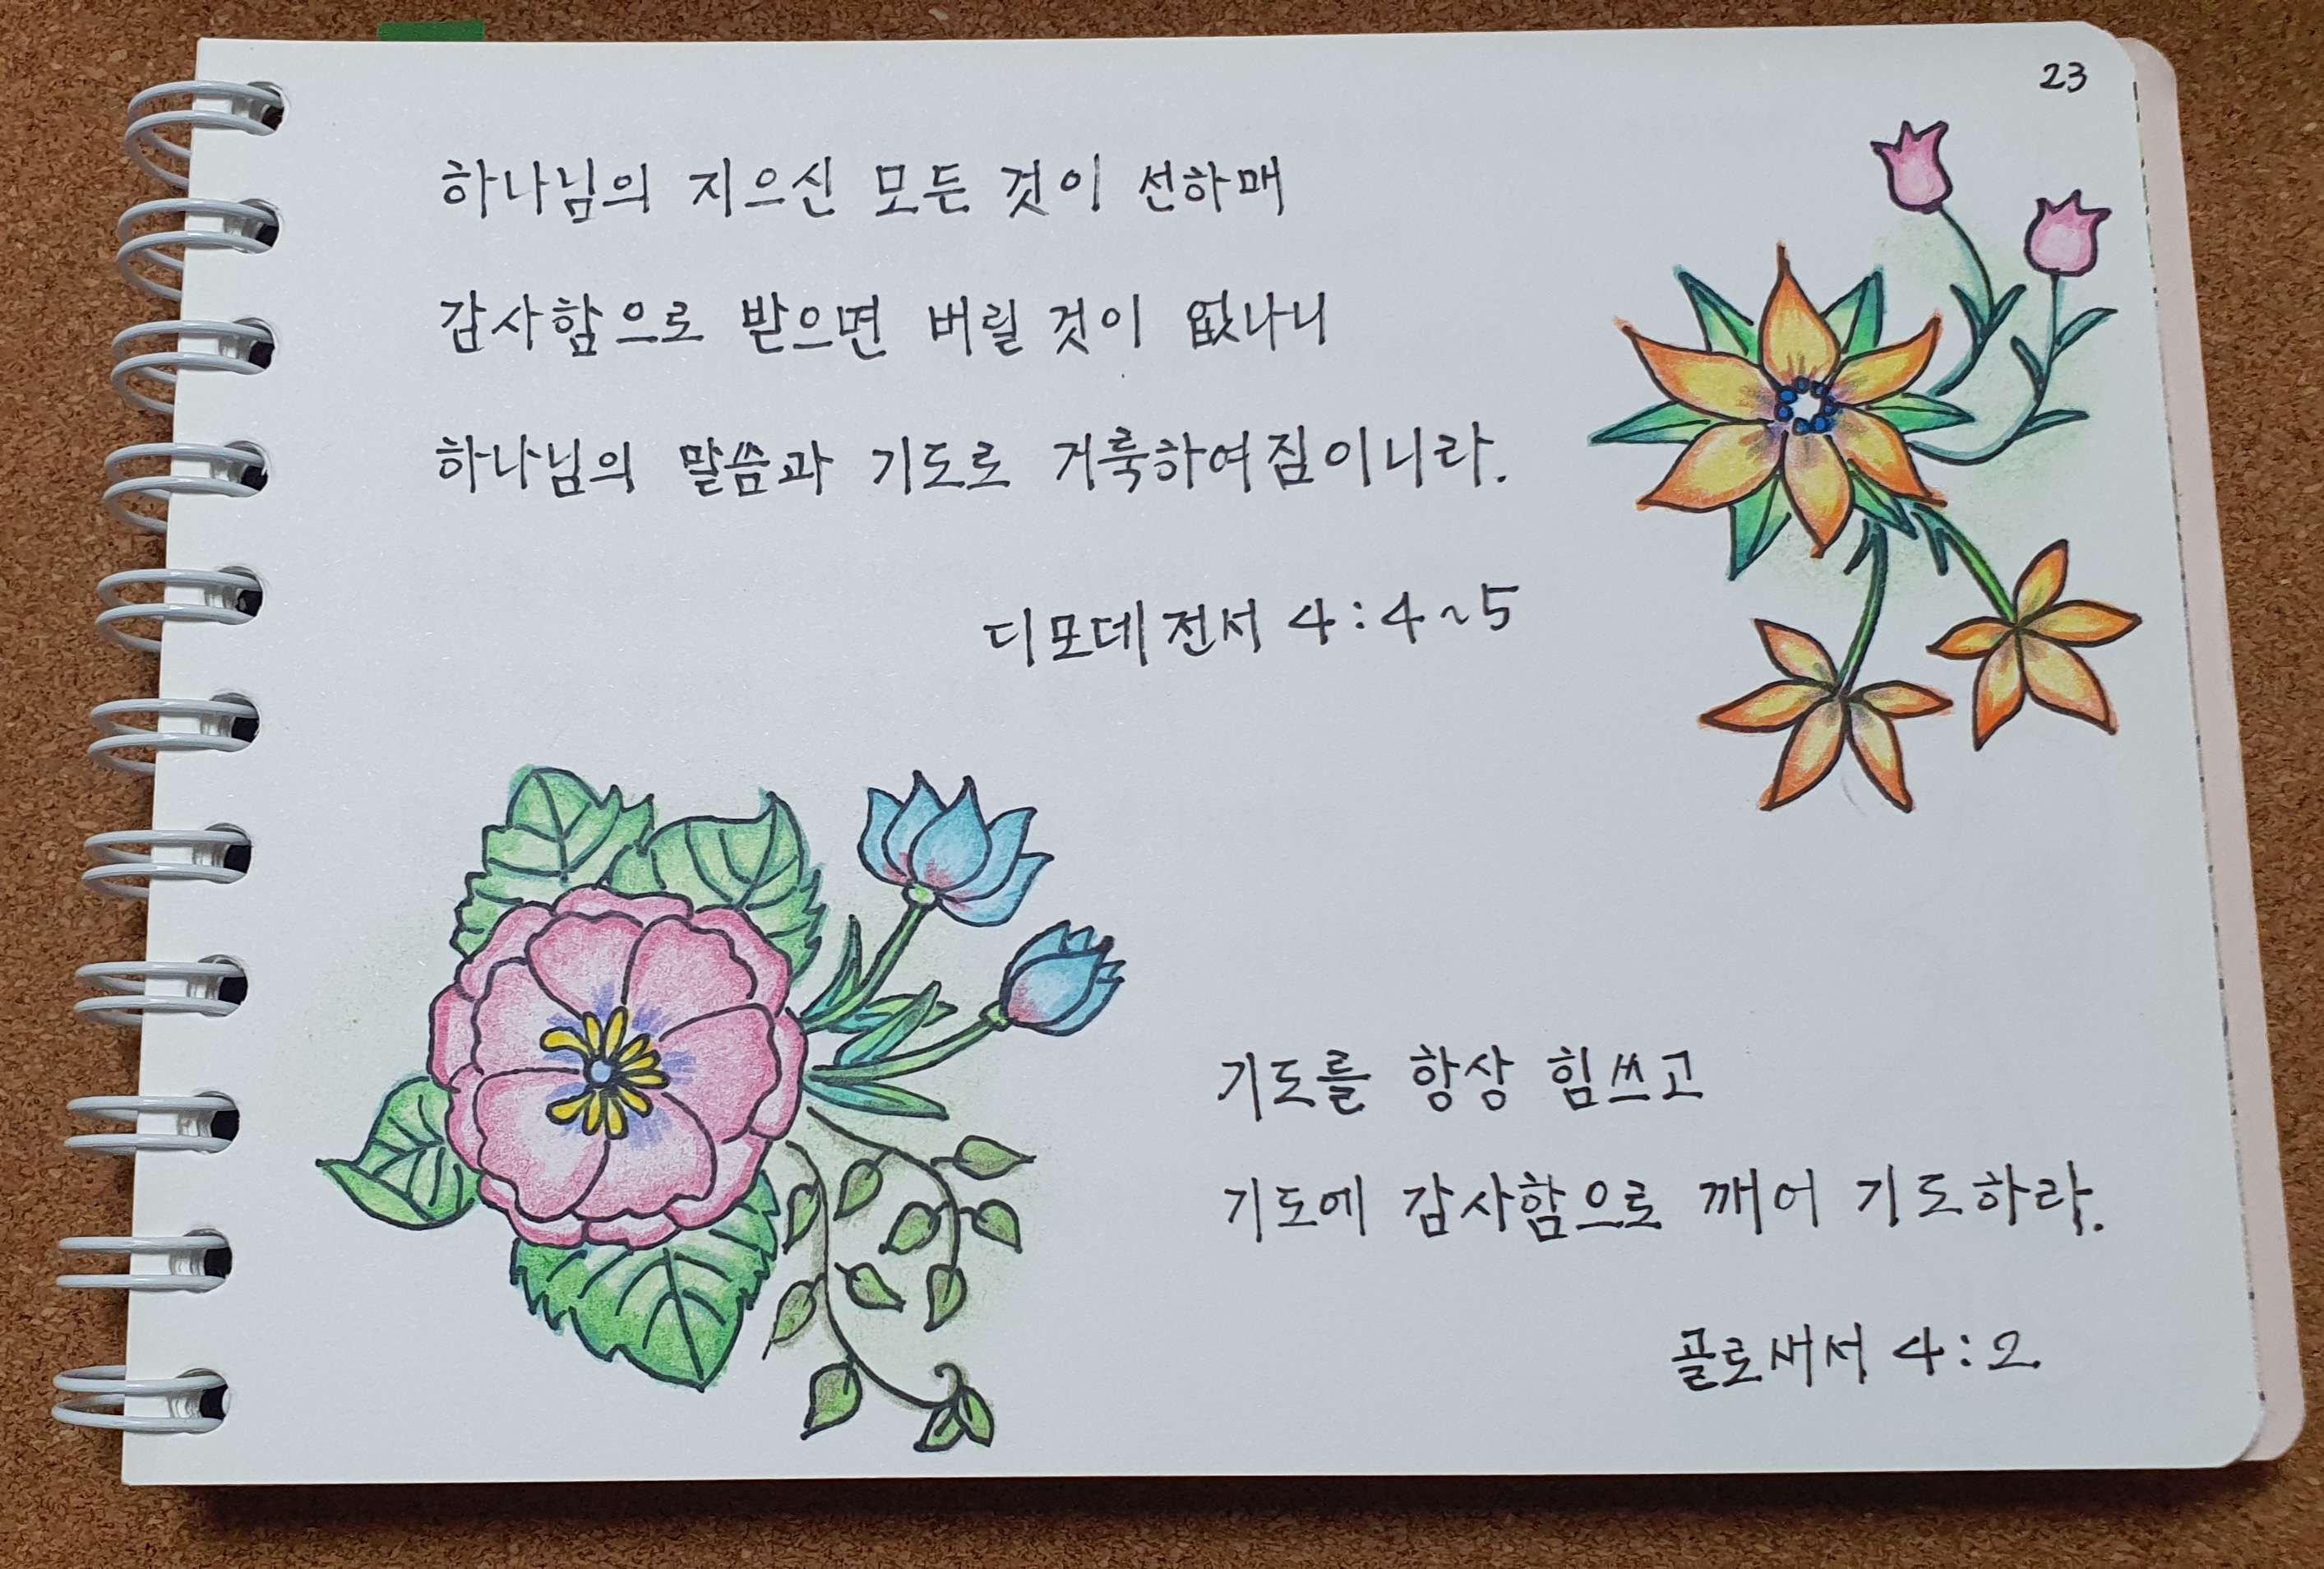 23
하나님의 지으신 모든 것이 선하매
감사함으로 받으면 버릴 것이 없나니
하나님의 말씀과 기도로 거룩하여짐이니라.
디모데전서 4:4~5
기도를 항상 힘쓰고
기도에 감사함으로 깨어 기도하라.
골로새서 4:2